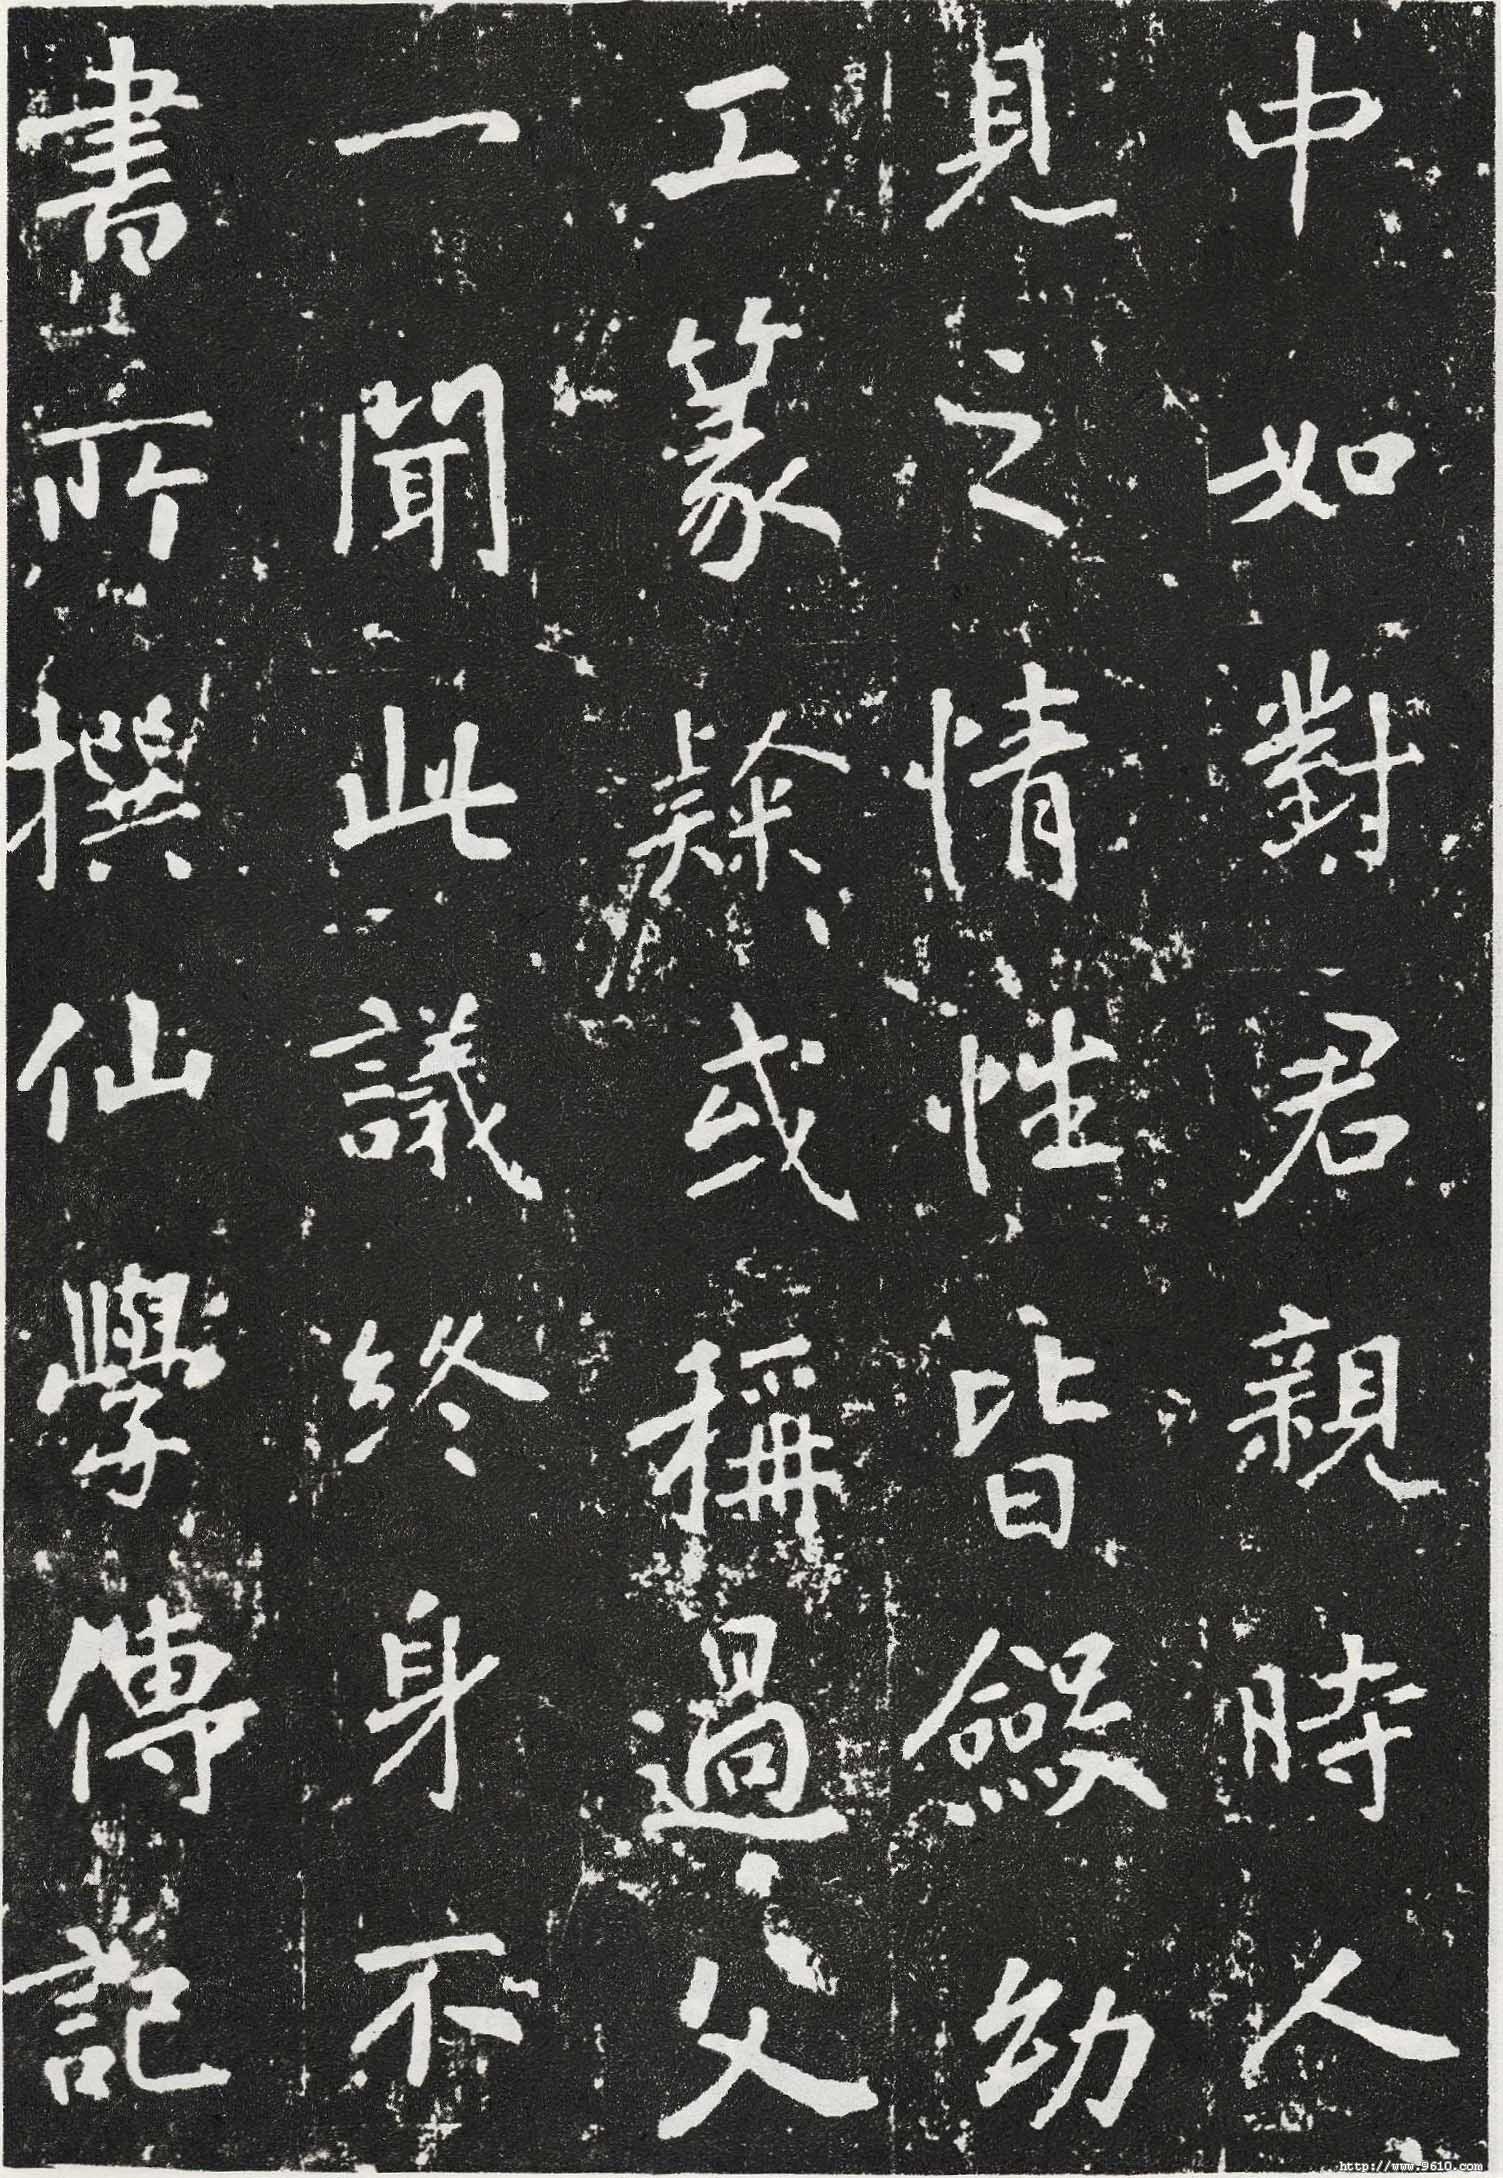 中如對君親時人
見之情性皆斂幼
工篆隸或稱過父
一聞此議終身不
書所撰仙學傳記
http://www.9610.com